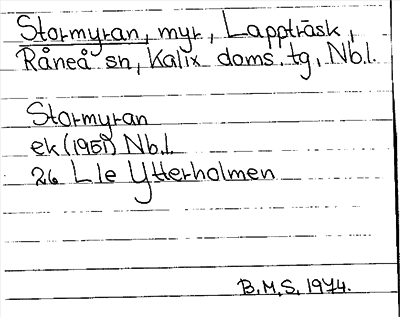 Stormyran, myr, Lappträsk,
Råneå sn, Kalix doms. tg, Nb.l.
Stormyran
ek (1951) Nb.l.
26 L le Ytterholmen
B.M.S. 1974.